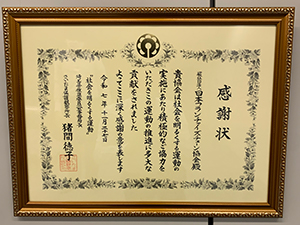 感謝状
一般社団法人 日本ランチェスター協会殿
貴協会は社会を明るくする運動の
実施にあたり積極的なご協力を
いただきこの運動の推進に多大な
貢献をされました
よってここに深く感謝の意を表します
令和七年十一月二十七日
社会を明るくする運動
猪間徳子